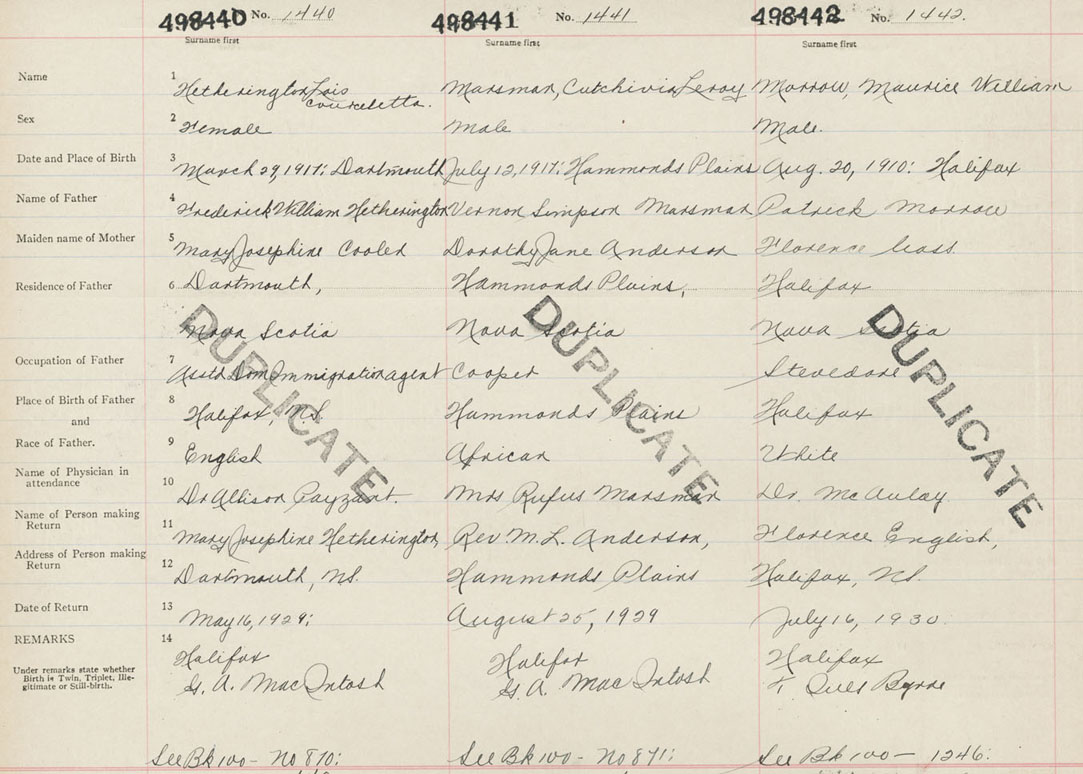 498440 No. 1440 498441 No. 1441 498442 No. 1442.
Surname first Surname first Surname first
Name 1 Hetherington Lois Marsman, Cutchivia Leroy Morrow, Maurice William
Courcletta.
Sex 2 Female Male Male.
Date and Place of Birth 3 March 29, 1917: Dartmouth July 12, 1917: Hammonds Plains Aug. 20, 1910: Halifax
Name of Father 4 Frederick William Hetherington Vernon Simpson Marsman Patrick Morrow
Maiden name of Mother 5 Mary Josephine Cooled Dorothy Jane Anderson Florence
Residence of Father 6 Dartmouth, Hammonds Plains, Halifax
Nova Scotia Nova Scotia Nova Scotia
DUPLICATE DUPLICATE DUPLICATE
Occupation of Father 7 Asstd Dom Immigration agent Cooper Stevedore
Place of Birth of Father 8 Halifax, N.S. Hammonds Plains Halifax
and
Race of Father. 9 English African White
Name of Physician in
attendance 10 Dr Allison Payzant. Mrs Rufus Marsman Dr. McAulay
Name of Person making
Return 11 Mary Josephine Hetherington, Rev. M. L. Anderson, Florence English,
Address of Person making
Return 12 Dartmouth, NS. Hammonds Plains Halifax, NS.
Date of Return 13 May 16, 1929; August 25, 1929 July 16, 1930.
REMARKS 14 Halifax Halifax Halifax
Under remarks state whether
Birth is Twin, Triplet, Ille-
gitimate or Still-birth.
G. A. MacIntosh G. A. MacIntosh Byrne
See Bk 100- No 870: See Bk 100- No 871: See Bk 100- 1246: